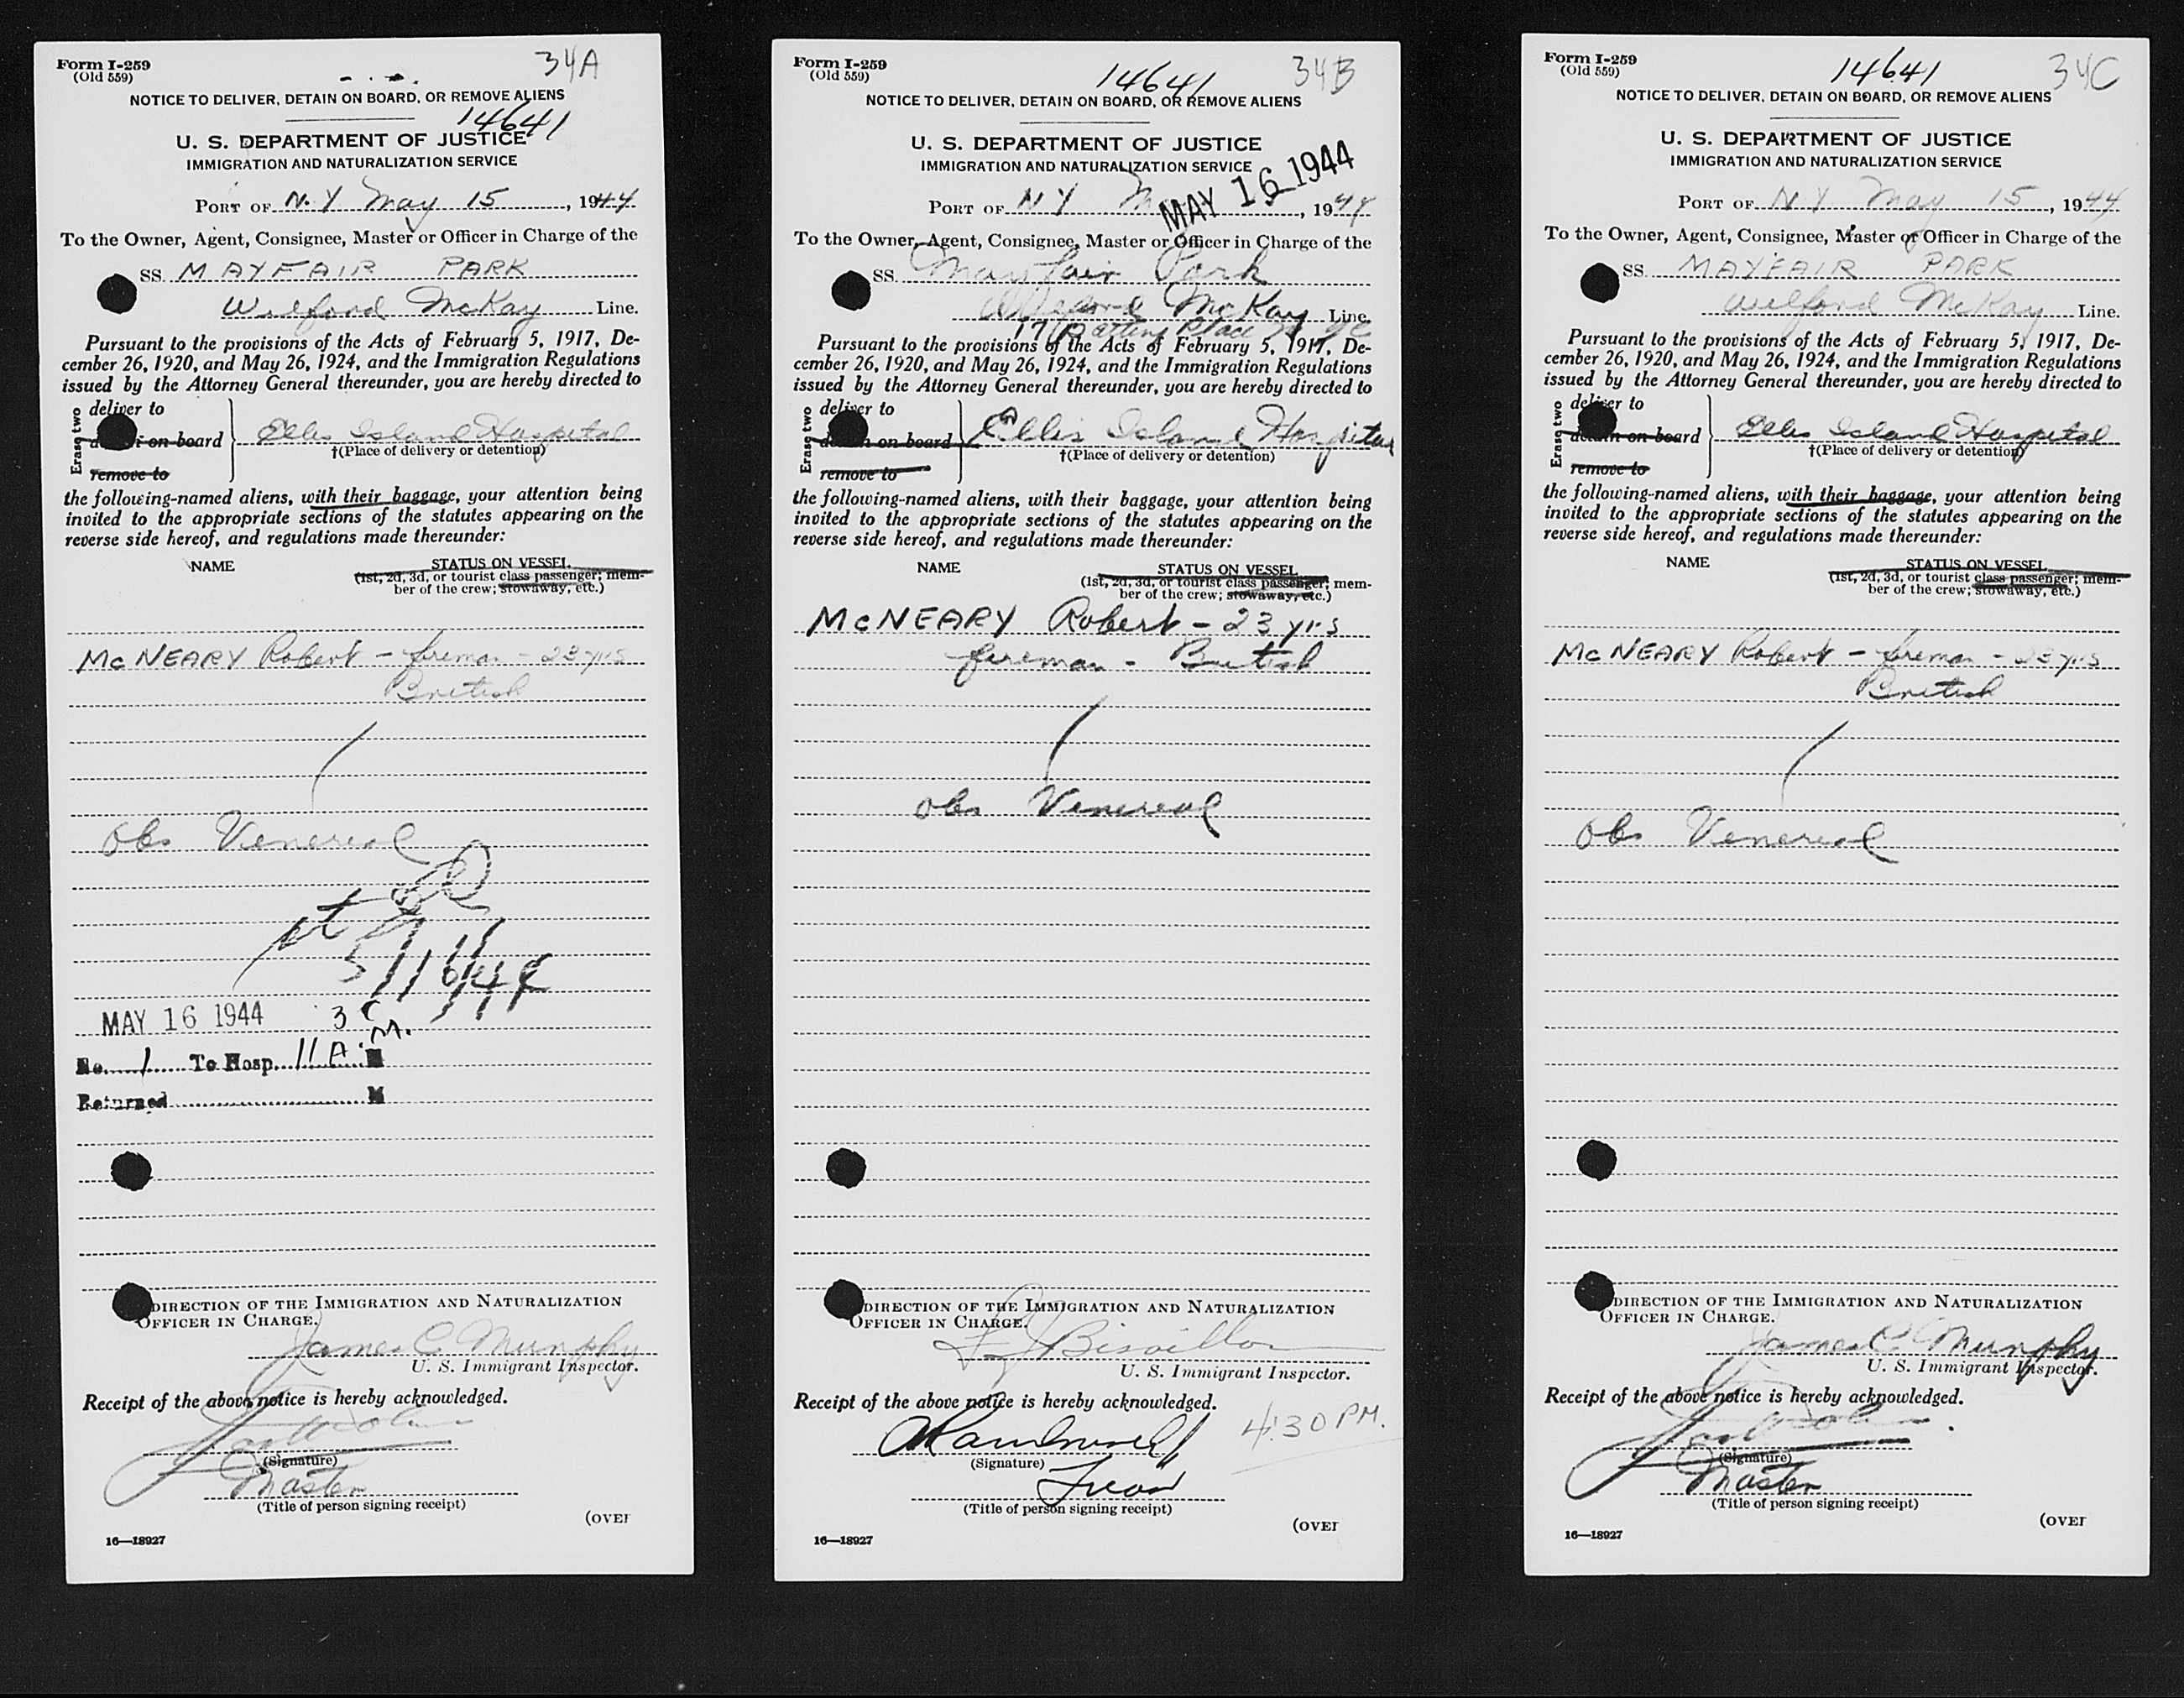 Form I-259
(Old 559)
34A
NOTICE TO DELIVER, DETAIN ON BOARD, OR REMOVE ALIENS
14641
U. S. DEPARTMENT OF JUSTICE
IMMIGRATION AND NATURALIZATION SERVICE
PORT OF N.Y May 15, 1944
To the Owner, Agent, Consignee, Master or Officer in Charge of the
SS. MAYFAIR PARK
Wilford McKay Line.
Pursuant to the provisions of the Acts of February 5, 1917, De-
cember 26, 1920, and May 26, 1924, and the Immigration Regulations
issued by the Attorney General thereunder, you are hereby directed to
Erase two
deliver to
on board
remove to
Ellis Island Hospital
†(Place of delivery or detention)
the following-named aliens, with their baggage, your attention being
invited to the appropriate sections of the statutes appearing on the
reverse side hereof, and regulations made thereunder:
NAME
STATUS ON VESSEL
(1st, 2d, 3d, or tourist class passenger; mem-
ber of the crew; stowaway, etc.)
McNEARY Robert - fireman - 23 yrs
British
Obs Venereal
MAY 16 1944
No. 1 To Hosp. 11 A. M
Returned M
DIRECTION OF THE IMMIGRATION AND NATURALIZATION
OFFICER IN CHARGE.
James C Murphy
U. S. Immigrant Inspector.
Receipt of the above notice is hereby acknowledged.
(Signature)
Master
(Title of person signing receipt)
(OVER
16—18927
Form I-259
(Old 559)
14641
34B
NOTICE TO DELIVER, DETAIN ON BOARD, OR REMOVE ALIENS
U. S. DEPARTMENT OF JUSTICE
IMMIGRATION AND NATURALIZATION SERVICE
MAY 16 1944
PORT OF N Y , 1944
To the Owner, Agent, Consignee, Master or Officer in Charge of the
SS. Mayfair Park
McKay Line.
17 Battery Place
Pursuant to the provisions of the Acts of February 5, 1917, De-
cember 26, 1920, and May 26, 1924, and the Immigration Regulations
issued by the Attorney General thereunder, you are hereby directed to
Erase two
deliver to
on board
remove to
Ellis Island Hospital
†(Place of delivery or detention)
the following-named aliens, with their baggage, your attention being
invited to the appropriate sections of the statutes appearing on the
reverse side hereof, and regulations made thereunder:
NAME
STATUS ON VESSEL
(1st, 2d, 3d, or tourist class passenger; mem-
ber of the crew; stowaway, etc.)
McNEARY Robert - 23 yrs
fireman - British
Obs Venereal
DIRECTION OF THE IMMIGRATION AND NATURALIZATION
OFFICER IN CHARGE.
U. S. Immigrant Inspector.
Receipt of the above notice is hereby acknowledged.
4:30 PM.
(Signature)
(Title of person signing receipt)
(OVER
16—18927
Form I-259
(Old 559)
14641
34C
NOTICE TO DELIVER, DETAIN ON BOARD, OR REMOVE ALIENS
U. S. DEPARTMENT OF JUSTICE
IMMIGRATION AND NATURALIZATION SERVICE
PORT OF N Y May 15, 1944
To the Owner, Agent, Consignee, Master or Officer in Charge of the
SS. MAYFAIR PARK
Wilford McKay Line.
Pursuant to the provisions of the Acts of February 5, 1917, De-
cember 26, 1920, and May 26, 1924, and the Immigration Regulations
issued by the Attorney General thereunder, you are hereby directed to
Erase two
deliver to
on board
remove to
Ellis Island Hospital
†(Place of delivery or detention)
the following-named aliens, with their baggage, your attention being
invited to the appropriate sections of the statutes appearing on the
reverse side hereof, and regulations made thereunder:
NAME
STATUS ON VESSEL
(1st, 2d, 3d, or tourist class passenger; mem-
ber of the crew; stowaway, etc.)
McNEARY Robert - fireman - 23 yrs
British
Obs Venereal
DIRECTION OF THE IMMIGRATION AND NATURALIZATION
OFFICER IN CHARGE.
James C Murphy
U. S. Immigrant Inspector.
Receipt of the above notice is hereby acknowledged.
(Signature)
Master
(Title of person signing receipt)
(OVER
16—18927